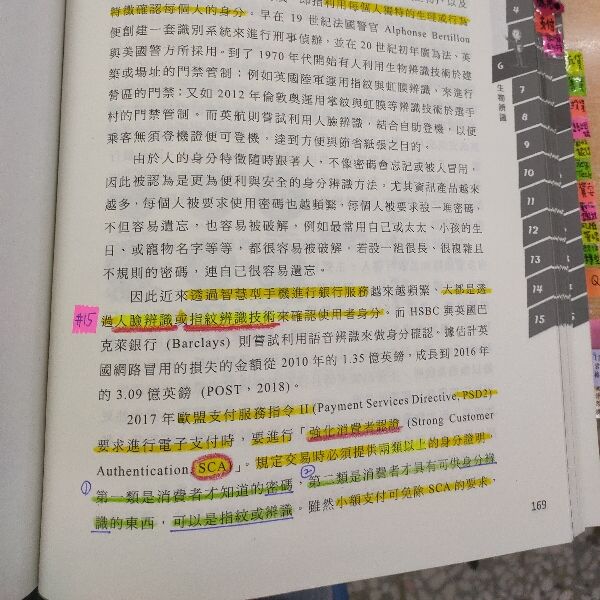 徵徵確認每個人的身分。早在 19 世紀法國警官 Alphonse Bertillon
便創建一套識別系統來進行刑事偵辦，並在 20 世紀初年廣為法、英
與美國警方所採用。到了 1970 年代開始有人利用生物辨識技術於建
築或場址的門禁管制；例如英國陸軍運用指紋與虹膜辨識，來進行
營區的門禁；又如 2012 年倫敦奧運用掌紋與虹膜等辨識技術於選手
村的門禁管制。而英航則嘗試利用人臉辨識，結合自助登機，以便
乘客無須登機證便可登機，達到方便與節省紙張之目的。
由於人的身分特徵隨時跟著人，不像密碼會忘記或被人冒用，
因此被認為是更為便利與安全的身分辨識方法。尤其資訊產品越來
越多，每個人被要求使用密碼也越頻繁，每個人被要求設一堆密碼，
不但容易遺忘，也容易被破解，例如最常用自己或太太、小孩的生
日、或寵物名字等等，都很容易被破解，若設一組很長、很複雜且
不規則的密碼，連自己很容易遺忘。
因此近來透過智慧型手機進行銀行服務越來越頻繁、大都是透
#15
過人臉辨識或指紋辨識技術來確認使用者身分。而 HSBC 與英國巴
克萊銀行 (Barclays) 則嘗試利用語音辨識來做身分確認。據估計英
國網路冒用的損失的金額從 2010 年的 1.35 億英鎊，成長到 2016 年
的 3.09 億英鎊 (POST，2018)。
2017 年歐盟支付服務指令 II (Payment Services Directive, PSD2)
要求進行電子支付時，要進行「強化消費者認證 (Strong Customer
Authentication, SCA)」。規定交易時必須提供兩類以上的身分證明，
① ②
第一類是消費者才知道的密碼，第二類是消費者才具有可供身分辨
識的東西，可以是指紋或辨識。雖然小額支付可免除 SCA 的要求，
169
4
6
生物辨識
7
8
9
10
11
12
13
14
15